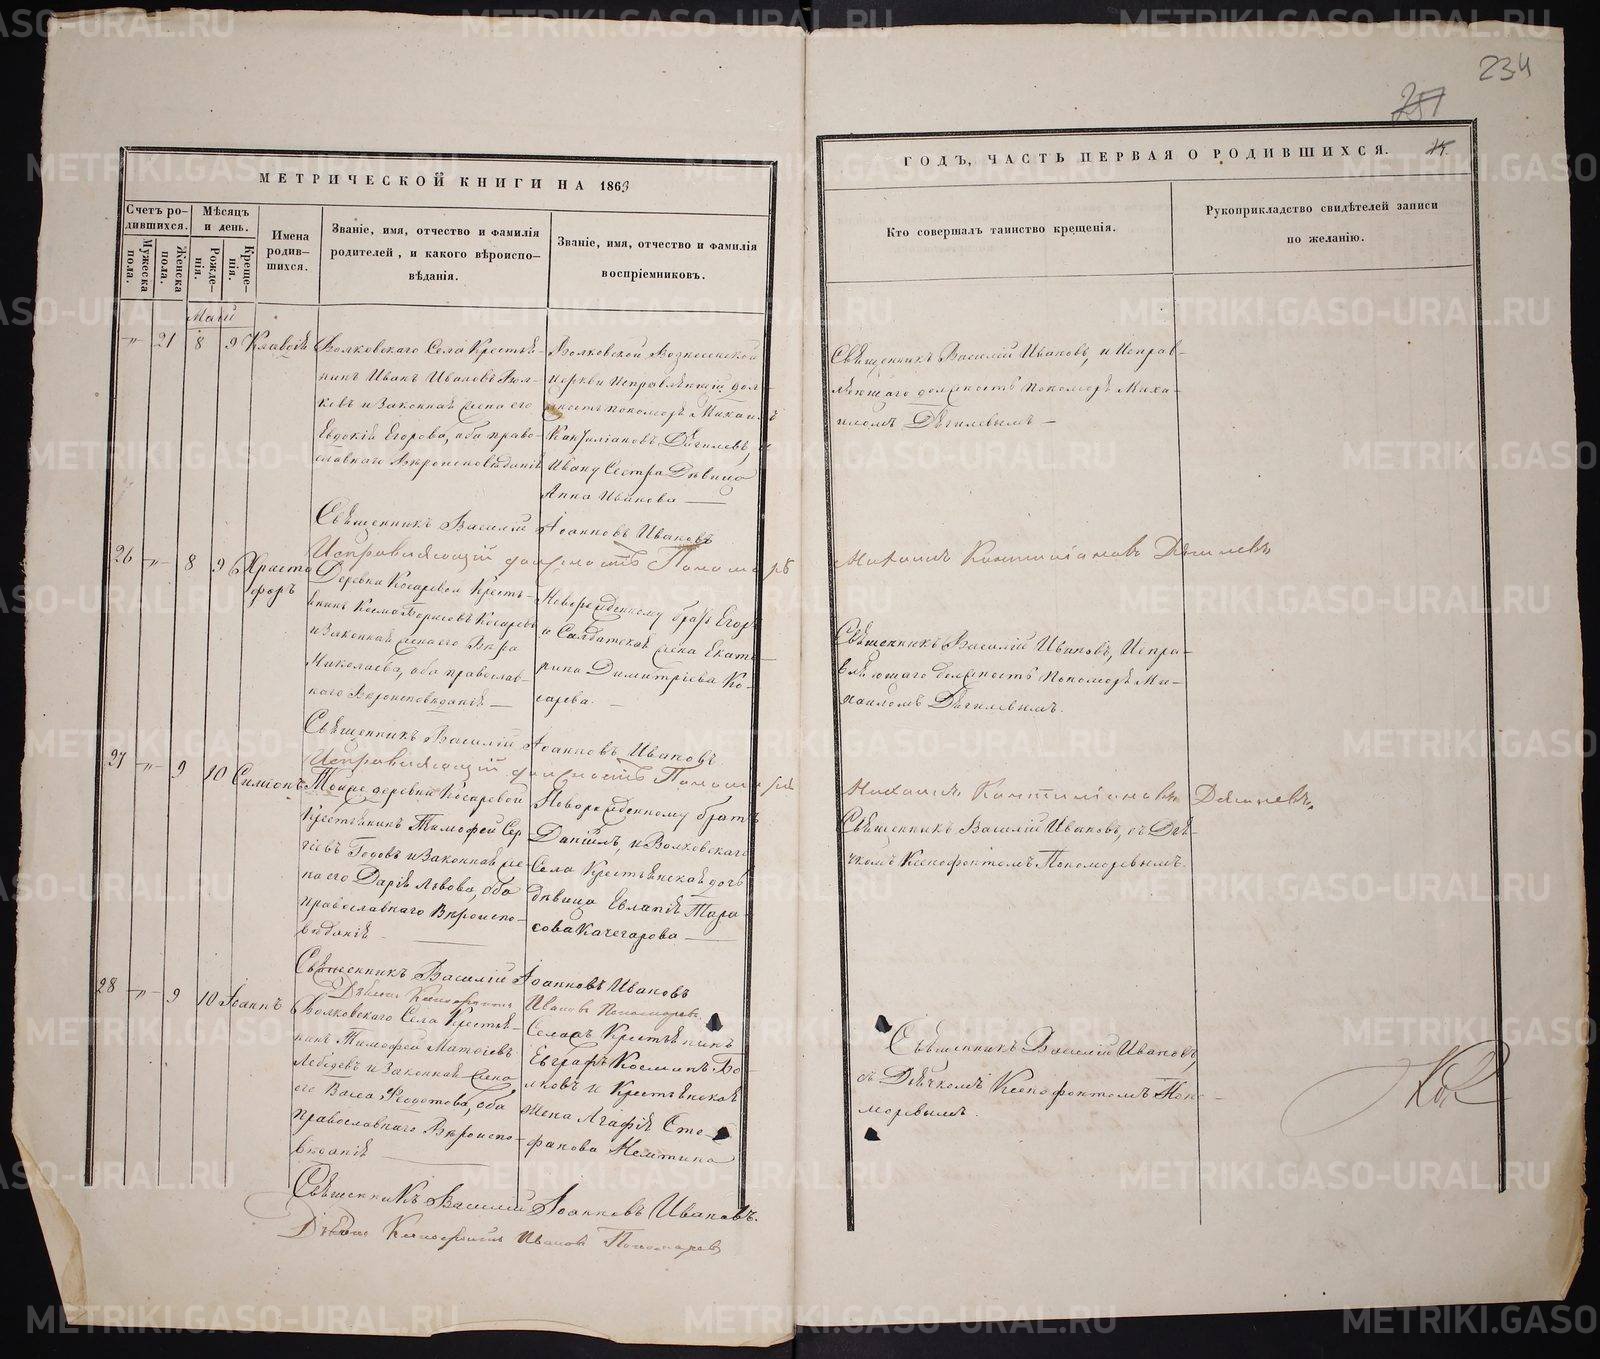 234
МЕТРИЧЕСКОЙ КНИГИ НА 1863
ГОДЪ, ЧАСТЬ ПЕРВАЯ О РОДИВШИХСЯ.
Счетъ ро-
дившихся.
Мужеска
пола.
Женска
пола.
Мѣсяцъ
и день.
Рожде-
нія.
Креще-
нія.
Имена
родив-
шихся.
Званіе, имя, отчество и фамилія
родителей, и какого вѣроиспо-
вѣданія.
Званіе, имя, отчество и фамилія
воспріемниковъ.
Кто совершалъ таинство крещенія.
Рукоприкладство свидѣтелей записи
по желанію.
Май
21 8 9 Клавдія
Волковскаго Села Крестья-
нинъ Иванъ Ивановъ
ковъ и Законная жена его
Евдокія Егорова, оба право-
славнаго Вѣроисповѣданія
Волковской Вознесенской
церкви Исправляющій дол-
жность пономаря Михаилъ
Дягилевъ, и
Ивану Сестра Дѣвица
Анна Иванова
Священникъ Василій Ивановъ, и Исправ-
ляющаго должность пономаря Миха-
иломъ Дягилевымъ
Священникъ Василій Іоанновъ Ивановъ
Исправляющій должность Пономаря
Михаилъ Дягилевъ
26 8 9 Христо
форъ
Деревни Косаревой Кресть-
янинъ Косма Борисовъ Косаревъ
и Законная жена его Вѣра
Николаева, оба православ-
наго Вѣроисповѣданія
Новорожденному братъ Егоръ
и Салдатская жена Екате-
рина Димитріева Ко-
сарева.
Священникъ Василій Ивановъ, Испра-
вляющаго должность пономаря Ми-
хаиломъ Дягилевымъ.
Священникъ Василій Іоанновъ Ивановъ
Исправляющій должность Пономаря
Михаилъ Дягилевъ
27 9 10 Симеонъ
Тойже деревни Косаревой
Крестьянинъ Тимофей Сер-
гіевъ и Законная же-
на его Дарія Львова, оба
православнаго Вѣроиспо-
вѣданія
Новорожденному братъ
Даніилъ, и Волковскаго
Села Крестьянская дочь
дѣвица Евлапія Тара-
сова Качегарова
Священникъ Василій Ивановъ, съ Дья-
чкомъ Ксенофонтомъ Пономаревымъ.
Священникъ Василій Іоанновъ Ивановъ
Дьячекъ Ксенофонтъ Ивановъ Пономаревъ
28 9 10 Іоаннъ
Волковскаго Села Крестья-
нинъ Тимофей Матѳіевъ
Лебедевъ и Законная жена
его Васса Ѳедотова, оба
православнаго Вѣроиспо-
вѣданія
Села Крестьянинъ
Евграфъ Косминъ Во-
лковъ и Крестьянская
жена Агафія Сте-
фанова
Священникъ Василій Ивановъ,
съ Дьячкомъ Ксенофонтомъ Поно-
маревымъ.
Священникъ Василій Іоанновъ Ивановъ.
Дьячекъ Ксенофонтъ Ивановъ Пономаревъ
METRIKI.GASO-URAL.RU